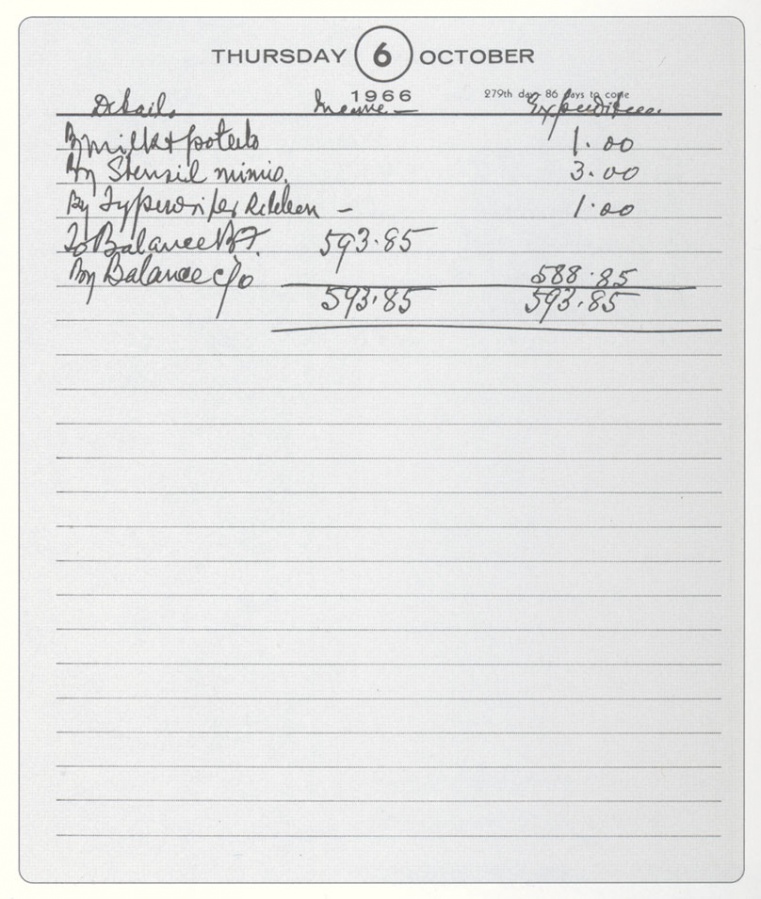 THURSDAY 6 OCTOBER
1966 279th day 86 days to come
Details Income — Expenditure
By milk & potato 1.00
By Stensil mimio. 3.00
By Typewriter Ribbon — 1.00
To Balance B.F. 593.85
By Balance c/o 588.85
593.85 593.85